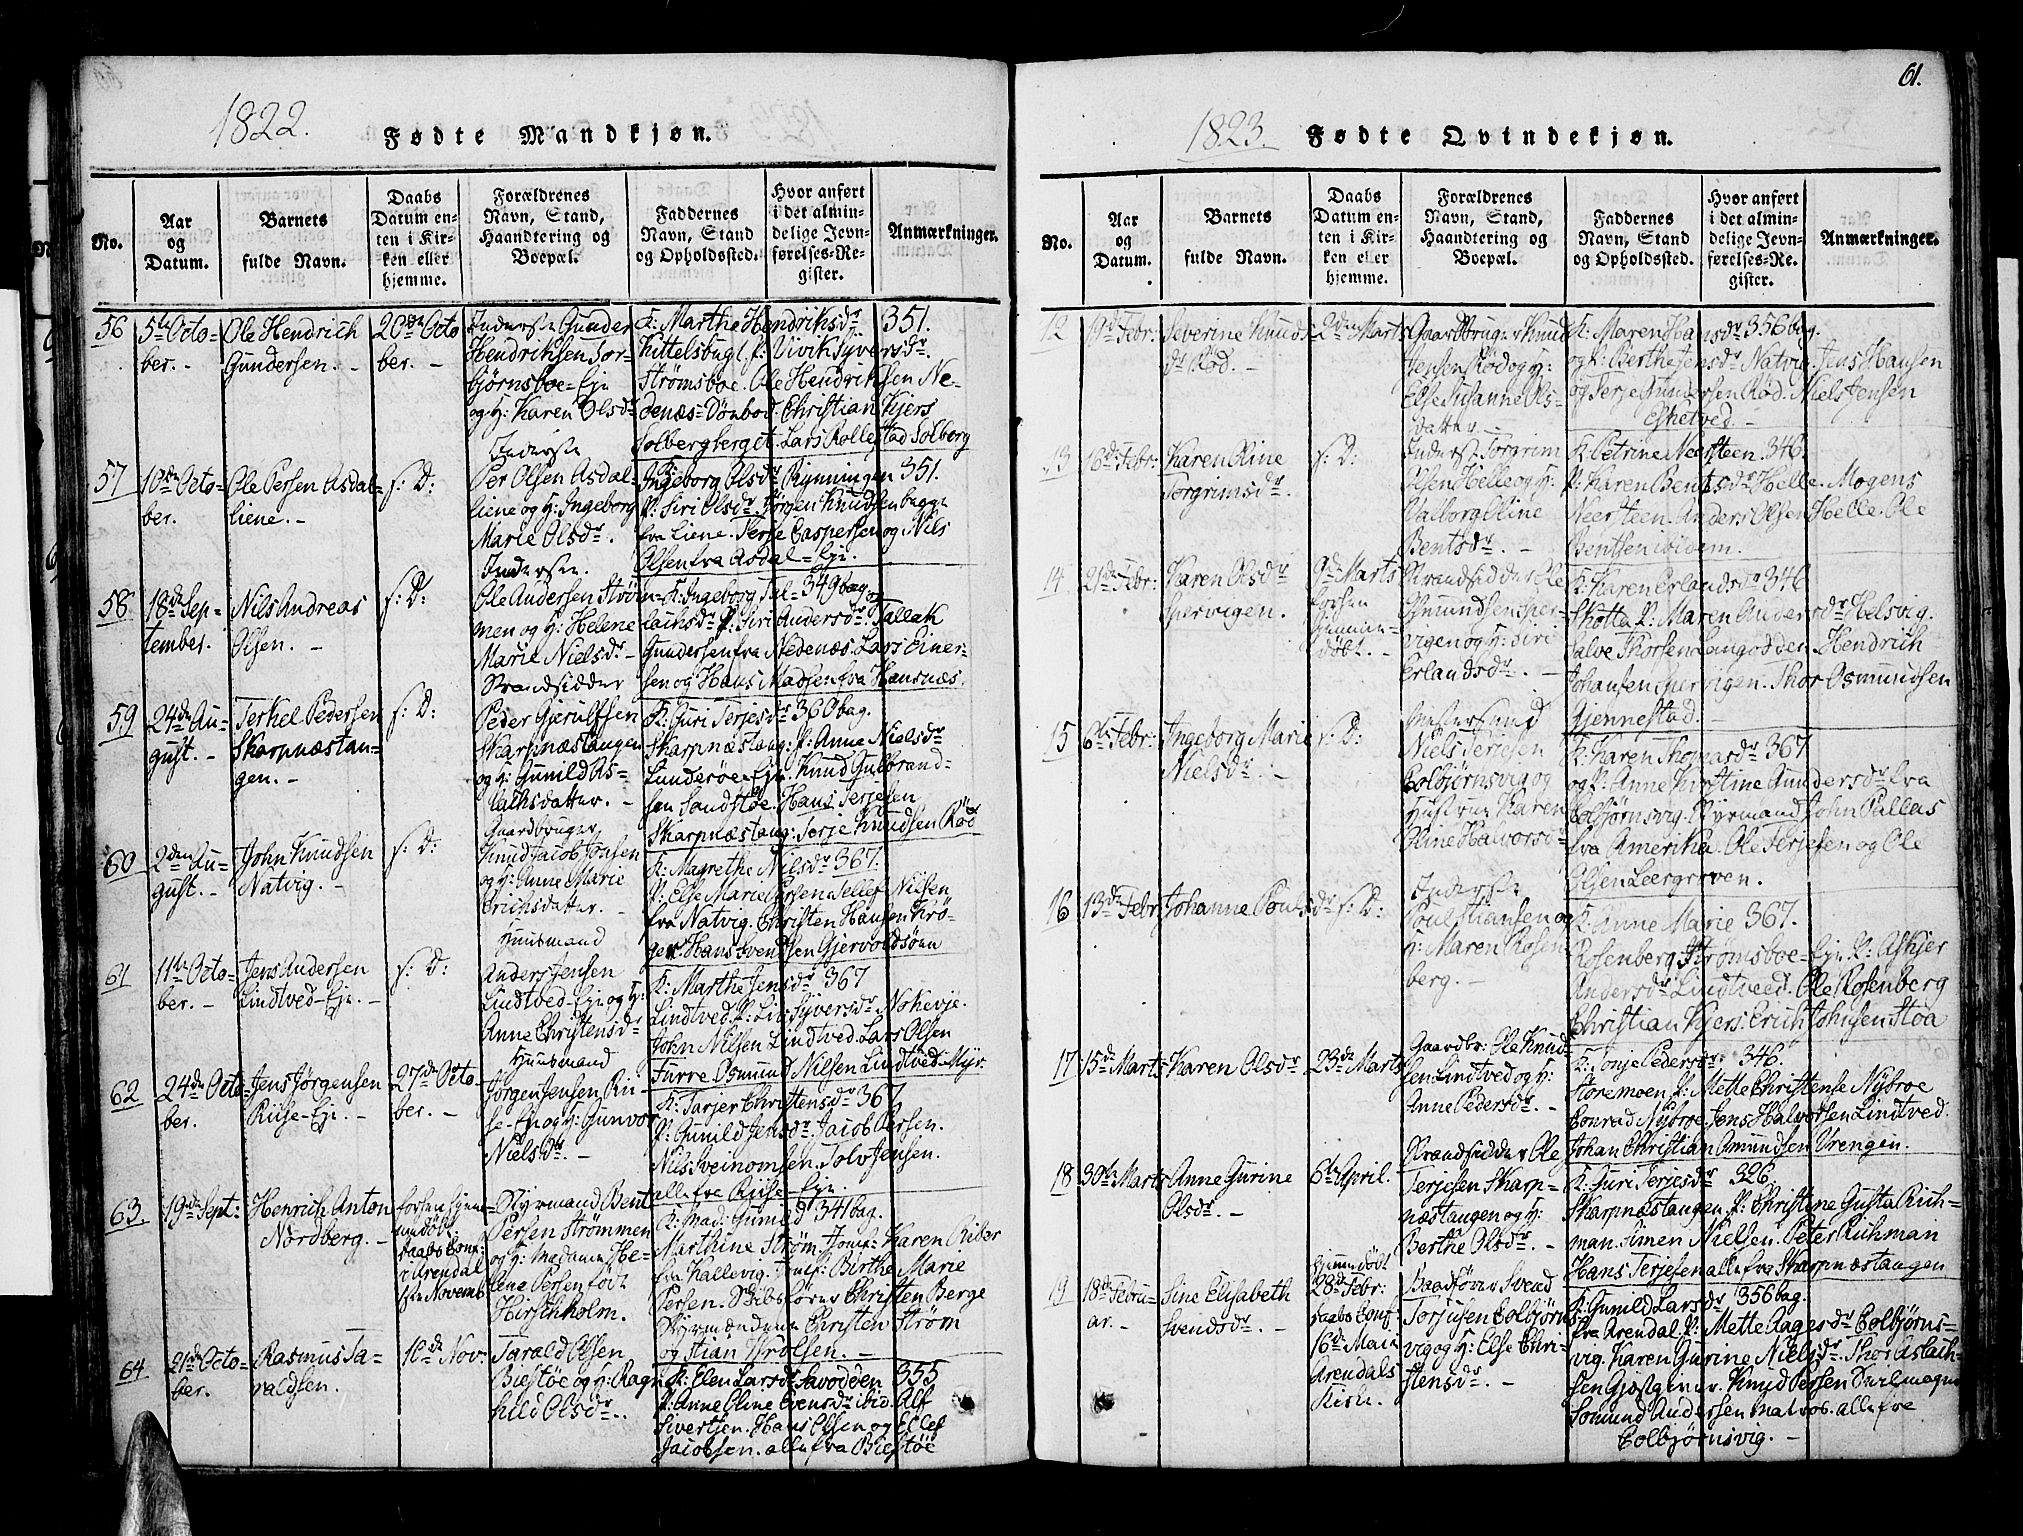 61.
1822.
Fødte Mandkjøn.
No.
Aar
og
Datum.
Barnets
fulde Navn.
Daabs
Datum en-
ten i Kir-
ken eller
hjemme.
Forældrenes
Navn, Stand,
Haandtering og
Boepæl.
Faddernes
Navn, Stand
og Opholdssted.
Hvor anført
i det almin-
delige Jevn-
førelses-Re-
gister.
Anmærkninger.
56
5te Octo-
ber. -
Ole Hendrich
Gundersen. -
20de Octo
ber. -
Inderste Gunder
Hendriksen Tor-
bjørnsboe-Eje
og H: Karen Olsdr
K: Marthe Hendriksdr. 351.
Kittelsbugt. P: Vivik Syversdr.
Strømsboe. Ole Hendriksen Ne-
denæs-Dønbod. Christian Kjers
Solbergberget. Lars Rollestad Solborg
57
10de Octo-
ber.
Ole Persen Asdal-
liene. -
s: D:
Inderste
Per Olsen Asdal-
liene og H: Ingeborg
Marie Olsdr.
K: Ingeborg Olsdr Rynningen 351.
P: Siri Olsdr. Jørgen Knudsen begge
fra Liene. Terje Caspersen og Nils
Olsen fra Asdal-Eje.
58
18de Sep-
tember.
Nils Andreas
Olsen. -
s: D:
Inderste.
Ole Andersen Strøm-
men og H: Helene
Marie Nielsdr. -
K: Ingeborg Tal- 349 bag og
lachsdr P: Siri Andersdr. Tallak
Gundersen fra Nedenæs. Lars Einer-
sen og Hans Madsen fra Hansnæs.
59
24de Au-
gust. -
Terkel Pedersen
Skarpnæstan-
gen. -
s: D:
Strandsidder
Peder Gjerulfsen
Skarpnæstangen
og H: Gunild As-
lachsdatter. -
K: Guri Terjesdr 360 bag.
Skarpnæstang: P: Anne Nielsdr
Lunderøe-Eje. Knud Gulbrand-
sen Sandstøe. Hans Terjesen
Skarpnæstang: Terje Knudsen Rød
60
2den Au-
gust. -
John Knudsen
Natvig. -
s: D:
Gaardbruger
Knud Jacob Josen
og H: Anne Marie
Erichsdatter. -
K: Magrethe Nielsdr 367.
P: Else Marie Persen. Tellef Nilsen
fra Natvig. Christen Hansen Krø-
ger. Hans Svendsen Gjervoldsøen
61
11te Octo-
ber. -
Jens Andersen
Lindtved-Eje. -
s: D:
Huusmand
Anders Jensen
Lindtved-Eje og H:
Anne Christensdr
K: Marthe Jensdr 367
Lindtved. P: Liv Syversdr Nokevje.
John Nilsen Lindtved. Lars Olsen
Furre. Osmund Nilsen Lindtved-Myr.
62
24de Octo-
ber.
Jens Jørgensen
Riise-Eje. -
27de Octo-
ber. -
Huusmand
Jørgen Jensen Rii-
se-Eje og H: Gunvor
Nielsdr. -
K: Tarjer Christensdr 367
P: Gunild Jensdr. Jacob Persen.
Nils Sveinomsen. Tolv Jensen.
alle fra Riise-Eje.
63.
19de Sept:
Henrich Anton
Nordberg. -
forsen hjem-
mendøbt.
Daabs Conf:
i Arendal
Novemb
Styrmand Bent
Persen Strømmen
og H: Madame He-
lene Persen født
Hirschholm.
K: Mad: Gunild 341 bag.
Marthine Strøm. Jomf: Karen Riber
fra Kallevig. Jomf: Birthe Marie
Persen. Skibsfører Christen Berge
Styrmændene Christen Strøm
og Stian Persen. -
64
21de Octo-
ber.
Rasmus Ta-
raldsen.
10de Nov:
Tarald Olsen
Biestøe og H: Ragn
hild Olsdr.
K: Elen Larsdr Savodden 355
P: Anne Oline Evensdr ibid. Alf
Sivertsen. Hans Olsen og Ellef
Jacobsen. alle fra Biestøe
1823.
Fødte Qvindekjøn.
No.
Aar
og
Datum.
Barnets
fulde Navn.
Daabs
Datum en-
ten i Kir-
ken eller
hjemme.
Forældrenes
Navn, Stand,
Haandtering og
Boepæl.
Faddernes
Navn, Stand
og Opholdssted.
Hvor anført
i det almin-
delige Jevn-
førelses-Re-
gister.
Anmærkninger.
12
19de Febr:
Severine Knuds-
dr Rød. -
2den Marts
Gaardbruger Knud
Jensen Rød og H:
Else Susanne Ols-
datter. -
K: Maren Hansdr 356 bag.
og P: Berthe Jensdr Natvig. Jens Hansen
og Terje Gundersen Rød. Niels Jensen
Esketved. -
13
16de Febr:
Karen Oline
Torgrimsdr.
s: D:
Inderst Torgrim
Olsen Helle og H:
Valborg Oline
Bentsdr. -
K: Petrine Neersteen. 346.
P: Karen Bentsdr Helle. Mogens
Neersteen. Anders Olsen Helle. Ole
Bentsen ibidem.
14
21de Febr:
Karen Olsdr
Spervigen.
9de Marts
forsen
hjemme-
døbt. -
Strandsidder Ole
Osmundsen Sper-
vigen og H: Siri
Erlandsdr. -
K: Karen Erlandsdr 346
Skotta. P: Maren Andersdr Helsvig.
Salve Thorsen Langodden. Hendrich
Johansen Spervigen. Thor Osmundsen
Gjennestad. -
15
6te Febr:
Ingeborg Marie
Nielsdr. -
s: D:
Mestersvend
Niels Terjesen
Colbjørnsvig og
Hustrue Karen
Oline Halvorsdr
K: Karen Thomasdr 367
og P: Anne Kirstine Gundersdr fra
Colbjørnsvig. Styrmand John Pallas
fra Amerika. Ole Terjesen og Ole
Olsen Leergerven.
16
13de Febr:
Johanne Poulsdr
s: D:
Inderste
Poul Stiansen og
H: Maren Rosen
berg. -
K: Anne Marie 367.
Rosenberg. Strømsboe-Eje. P: Askjer
Andersdr Lindtveed. Ole Rosenberg
Christian Kjers. Erich Johnsen Stoa
17
15de Marts
Karen Olsdr
23de Marts
Gaardbr: Ole Knud-
sen Lindtved og H:
Anne Pedersdr. -
K: Tonje Pedersdr 346.
Storemoen. P: Mette Christense Nybroe
Conrad Nybroe. Jens Halvorsen Lindtved.
Johan Christian Amundsen Vrengen.
18
30te Marts
Anne Gurine
Olsdr. -
6te April.
Strandsidder Ole
Terjesen Skarp-
næstangen og H:
Berthe Olsdr. -
K: Guri Terjesdr 326.
Skarpnæstangen. P: Christine Gusta Rich-
man. Simen Nielsen. Peter Richman
Hans Terjesen alle fra Skarpnæstangen
19
18de Febru-
ar. -
Sine Elisabeth
Svendsdr. -
hjemmedøbt
28de Febr:
Daabs Conf
16de Mai i
Arendals
Kirke.
Baadfører Svend
Torjusen Colbjørns-
vig og H: Else Chri-
stensdr. -
K: Gunild Larsdr 356 bag.
fra Arendal. P: Mette Aagesdr Colbjørns-
vig. Karen Gurine Nielsdr. Thor Aslach-
sen Gjestgiver. Knud Persen Seilmager
Somund Andersen Matros. alle fra
Colbjørnsvig. -